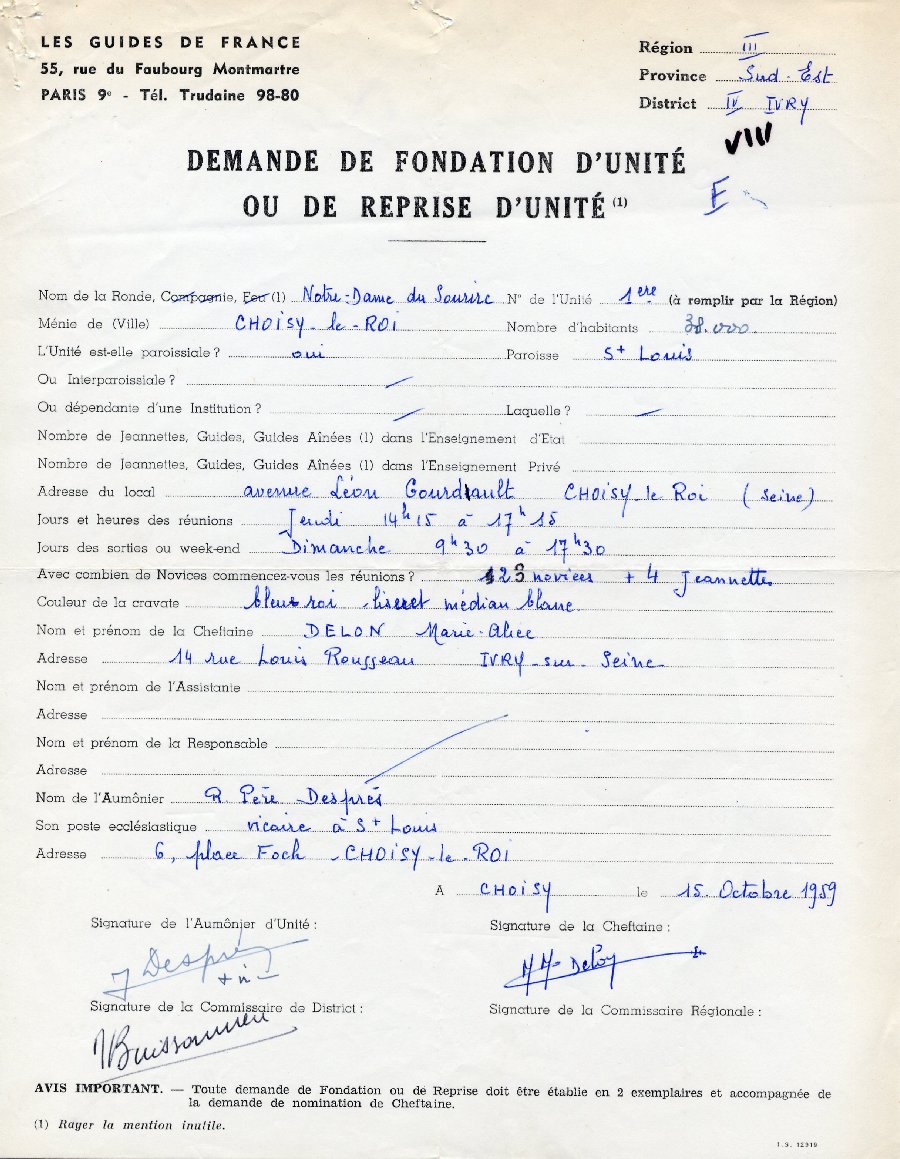 LES GUIDES DE FRANCE
55, rue du Faubourg Montmartre
PARIS 9e - Tél. Trudaine 98-80
Région III
Province Sud-Est
District IV IVRY
VIII
DEMANDE DE FONDATION D'UNITÉ
OU DE REPRISE D'UNITÉ (1)
E
Nom de la Ronde, Compagnie, Feu (1) Notre-Dame du Sourire N° de l'Unité 1ere (à remplir par la Région)
Ménie de (Ville) CHOISY-le-ROI Nombre d'habitants 38.000
L'Unité est-elle paroissiale ? oui Paroisse St Louis
Ou Interparoissiale ? —
Ou dépendante d'une Institution ? — Laquelle ? —
Nombre de Jeannettes, Guides, Guides Aînées (1) dans l'Enseignement d'Etat
Nombre de Jeannettes, Guides, Guides Aînées (1) dans l'Enseignement Privé
Adresse du local avenue Léon Gourdault CHOISY-le Roi (Seine)
Jours et heures des réunions Jeudi 14h15 à 17h15
Jours des sorties ou week-end Dimanche 9h30 à 17h30
Avec combien de Novices commencez-vous les réunions ? novices + 4 Jeannettes
Couleur de la cravate bleu roi - liseret médian blanc
Nom et prénom de la Cheftaine DELON Marie-Alice
Adresse 14 rue Louis Rousseau IVRY-sur-Seine
Nom et prénom de l'Assistante
Adresse
Nom et prénom de la Responsable
Adresse
Nom de l'Aumônier R. Père Després
Son poste ecclésiastique vicaire à St Louis
Adresse 6, place Foch - CHOISY-le-ROI
A CHOISY le 15 Octobre 1959
Signature de l'Aumônier d'Unité : Signature de la Cheftaine :
J Després
Signature de la Commissaire de District : Signature de la Commissaire Régionale :
AVIS IMPORTANT. — Toute demande de Fondation ou de Reprise doit être établie en 2 exemplaires et accompagnée de
la demande de nomination de Cheftaine.
(1) Rayer la mention inutile.
I.S. 12919